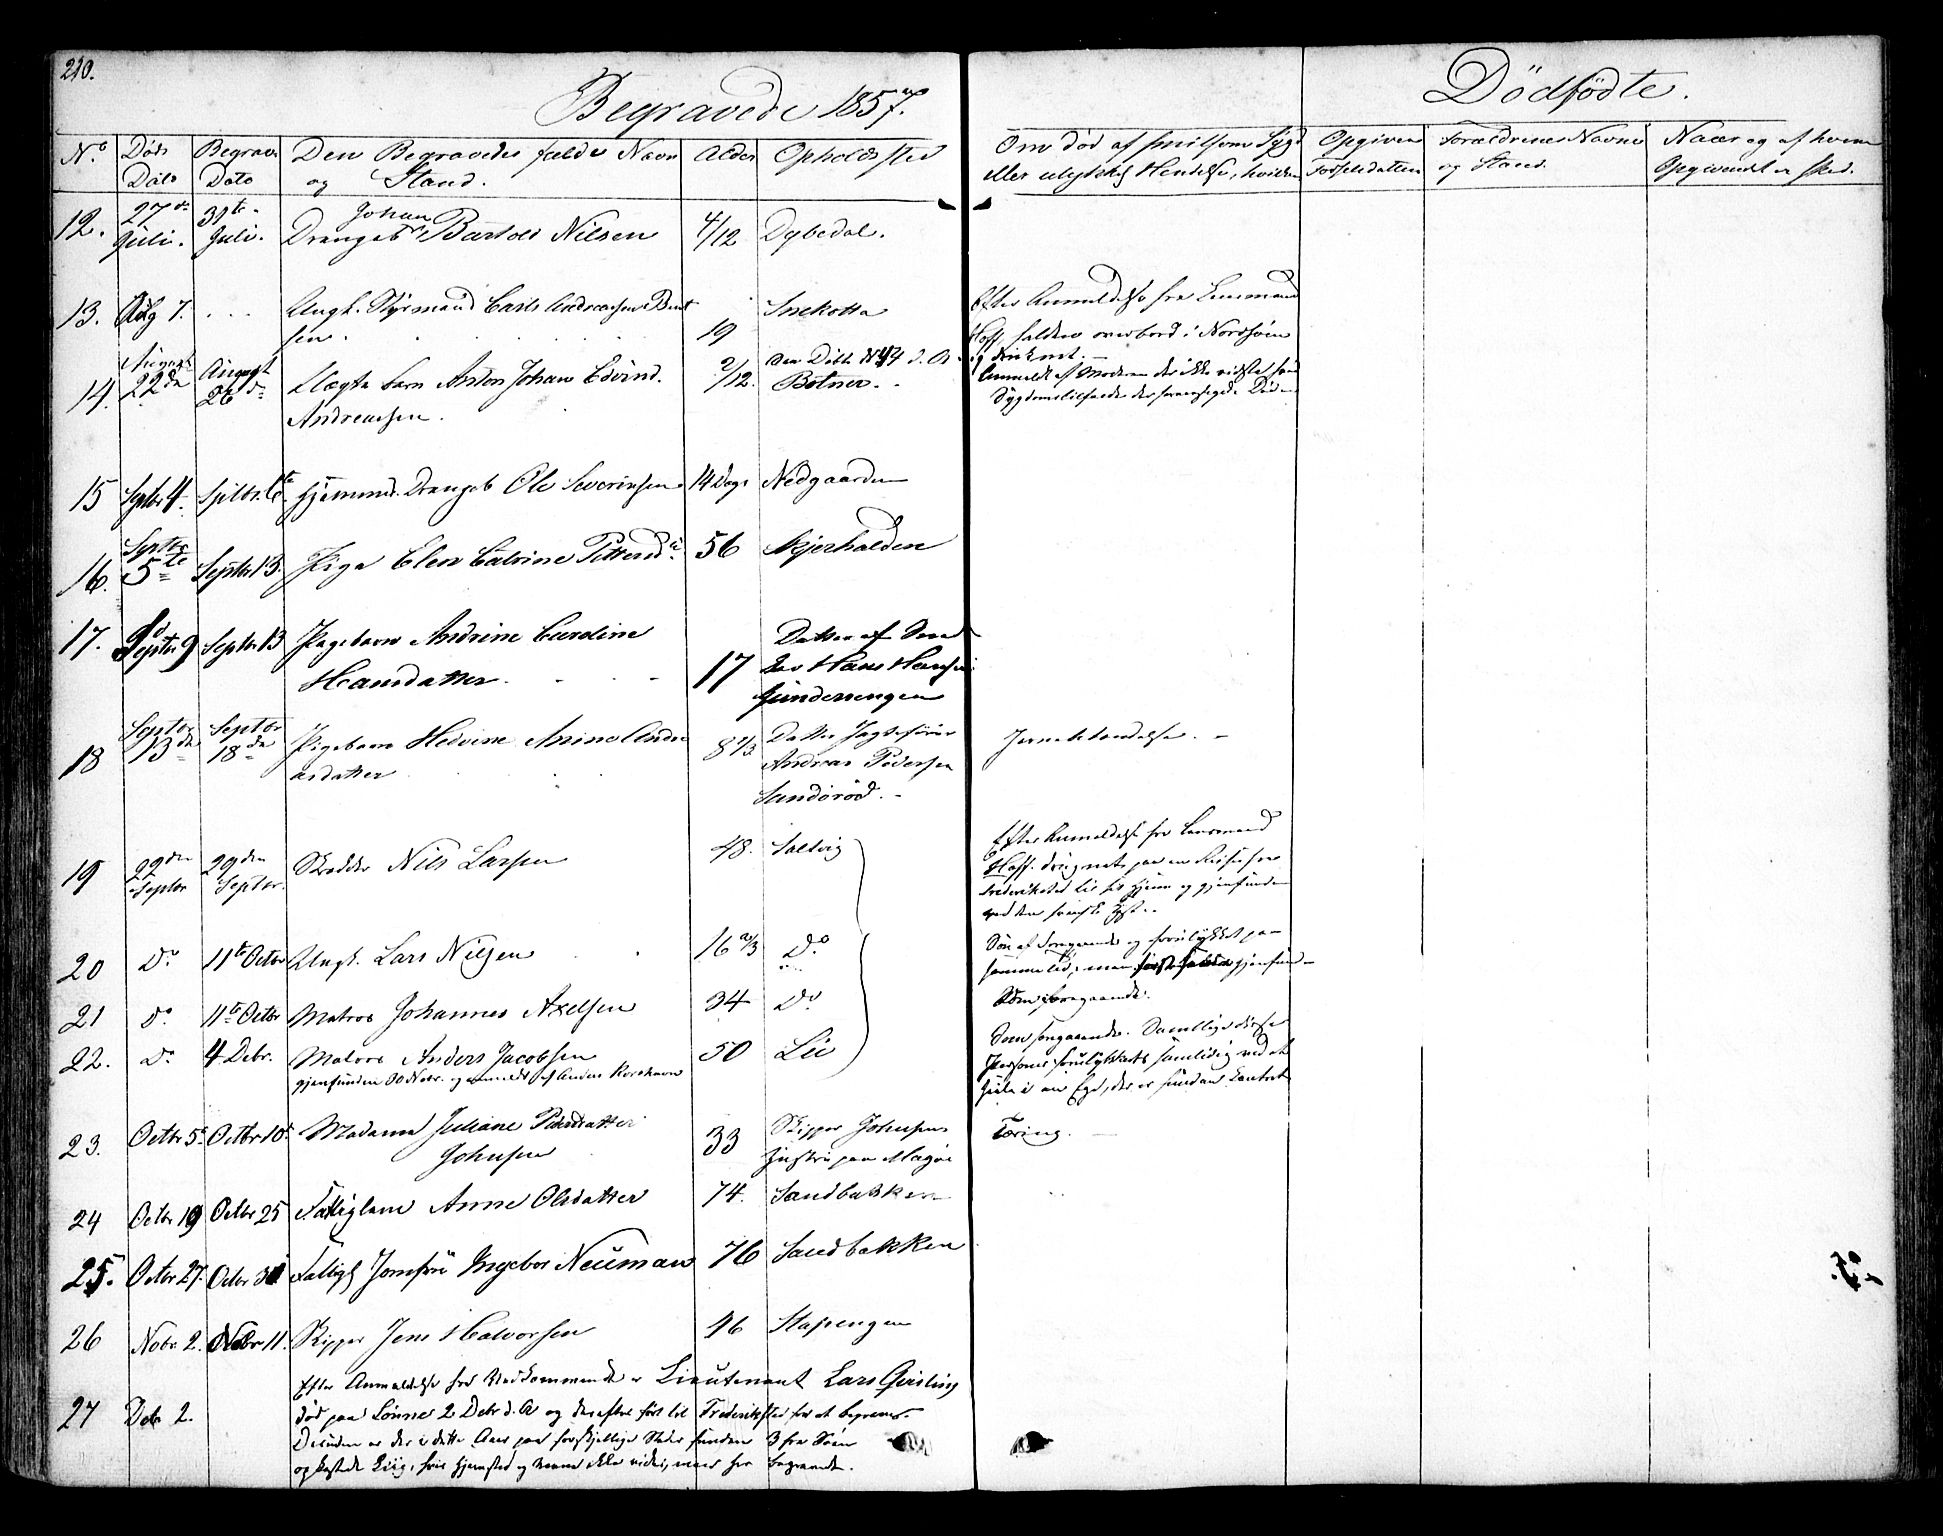 210.
Begravede 1857.
Dødfødte.
No Døds Dato Begrav: Dato Den Begravedes fulde Navn og Stand. Alder Opholdssted
Om død af smitsom Sygd
eller ulykkelig Hendelse, hvilken
Opgiven Fødselsdatten
Forældrenes Navne og Stand.
Naar og af hvem Opgivendet er sked.
12. 27de Juli. 31te Juli. Drengeb Johan Bartold Nilsen 4/12 Dybedal.
13. Aug 7. . . . Ungk. Styrmand Carls Andreassen Bent
sen. 19 Snekotta
Efter Anmeldelse fra Lensmand
Hoff, falden overbord i Nordsøen
og druknet. —
14. August 22de August 26de Uægte Barn Anton Johan Edvind.
Andreassen. 2/12. Botner.
Anmeldt af Moderen der ikke vidste
15 Septbr 4. Septbr. 6te Hjemmed. Drengeb Ole Severinsen 14 Dage Nedgaarden
16. Septbr 5te Septbr 13. Pige Elen Catrine 56 Skjerhalden
17. Septbr 9 Septbr 13 Pigebarn Andrine Caroline
Hansdatter. 17 Datter af
Hans Hansen
Gunderengen
18 Septbr 13de Septbr 18de Pigebarn Hedvine Anine Andre
asdatter 8 1/3 Datter
Andreas Pedersen
Sandørød. —
19 22den Septbr 29den Septbr. Skredder Nils Larsen 48. Saltvig
Efter Anmeldelse fra Lensmand
Hoff. druknet paa en Reise fra
Frederiksted til sit Hjem og gjenfunden
ved den svenske Kyst..
20 Do 11te Octbr Ungk. Lars Nilsen 16 2/3 Do
Søn af Foregaaende og forulykket paa
samme tid, men
21 Do 11te Octbr Matros Johannes Axelsen 34 Do
Som foregaaende.
22. Do 4 Debr. Matros Anders Jacobsen 50 Lie
gjenfunden 30 Novbr. og anmeldt af Anders Korshavn
Som foregaaende. Samtlige disse
Personer forulykkede samtidig ved at
seile i en Ege, der er funden kantret
23. Octbr 5te Octbr 10de Madame Juliane Pedersdatter
Johnsen 33 Skipper Johnsens
Hustru paa Magøe
Tæring. —
24 Octbr 19 Octbr 25 Fattiglem Anne Olsdatter 74. Sandbakken
25. Octbr 27. Octbr 31 Fattigl Jomfru Ingebor Neuman 76 Sandbakken
25.
26 Nobr. 2. Nobr 11. Skipper Jens Halvorsen 46 Stapengen
27 Debr 2. Efter Anmeldelse fra Vedkommende er Lieutenant Lars Qvisling
død paa Lønne 2 Debr d. A og derefter ført til Frederiksted for at begraves.
Desuden er der i dette Aar paa forskjellige Steder funden 3 fra Søen
opkastede Liig, hvis Hjemsted og Navne ikke vides, men her begravede.